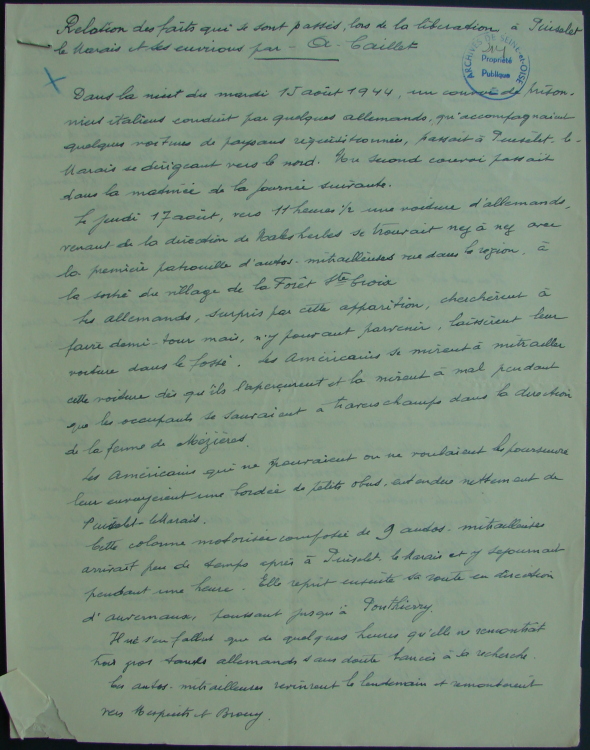 Relation des faits qui se sont passés, lors de la libération à Puiselet
le Marais et ses environs par - A. Caillet
ARCHIVES DE SEINE-et-OISE
Propriété
Publique
Dans la nuit du mardi 15 août 1944, un convoi de prison-
niers italiens conduit par quelques allemands, qu'accompagnaient
quelques voitures de paysans réquisitionnées, passait à Puiselet-le-
Marais se dirigeant vers le nord. Un second convoi passait
dans la matinée de la journée suivante.
Le jeudi 17 août, vers 11 heures ½ une voiture d'allemands,
venant de la direction de Malesherbes se trouvait nez à nez avec
la première patrouille d'autos-mitrailleuses vue dans la région, à
la sortie du village de la Forêt Ste Croix
Les allemands, surpris par cette apparition, cherchèrent à
faire demi-tour mais, n'y pouvant parvenir, laissèrent leur
voiture dans le fossé. Les Américains se mirent à mitrailler
cette voiture dès qu'ils l'aperçurent et la mirent à mal pendant
que les occupants se sauvaient à travers champs dans la direction
de la ferme de Mézières.
Les Américains qui ne pouvaient ou ne voulaient les poursuivre
leur envoyèrent une bordée de petits obus, entendue nettement de
Puiselet-le-Marais.
Cette colonne motorisée composée de 9 autos-mitrailleuses
arrivait peu de temps après à Puiselet-le-Marais et y séjournait
pendant une heure. Elle reprit ensuite sa route en direction
d'auvernaux, poussant jusqu'à Ponthierry.
Il ne s'en fallut que de quelques heures qu'elle ne rencontrât
trois gros tanks allemands sans doute lancés à sa recherche.
Ces autos-mitrailleuses revinrent le lendemain et remontèrent
vers Mespuits et Brouy.